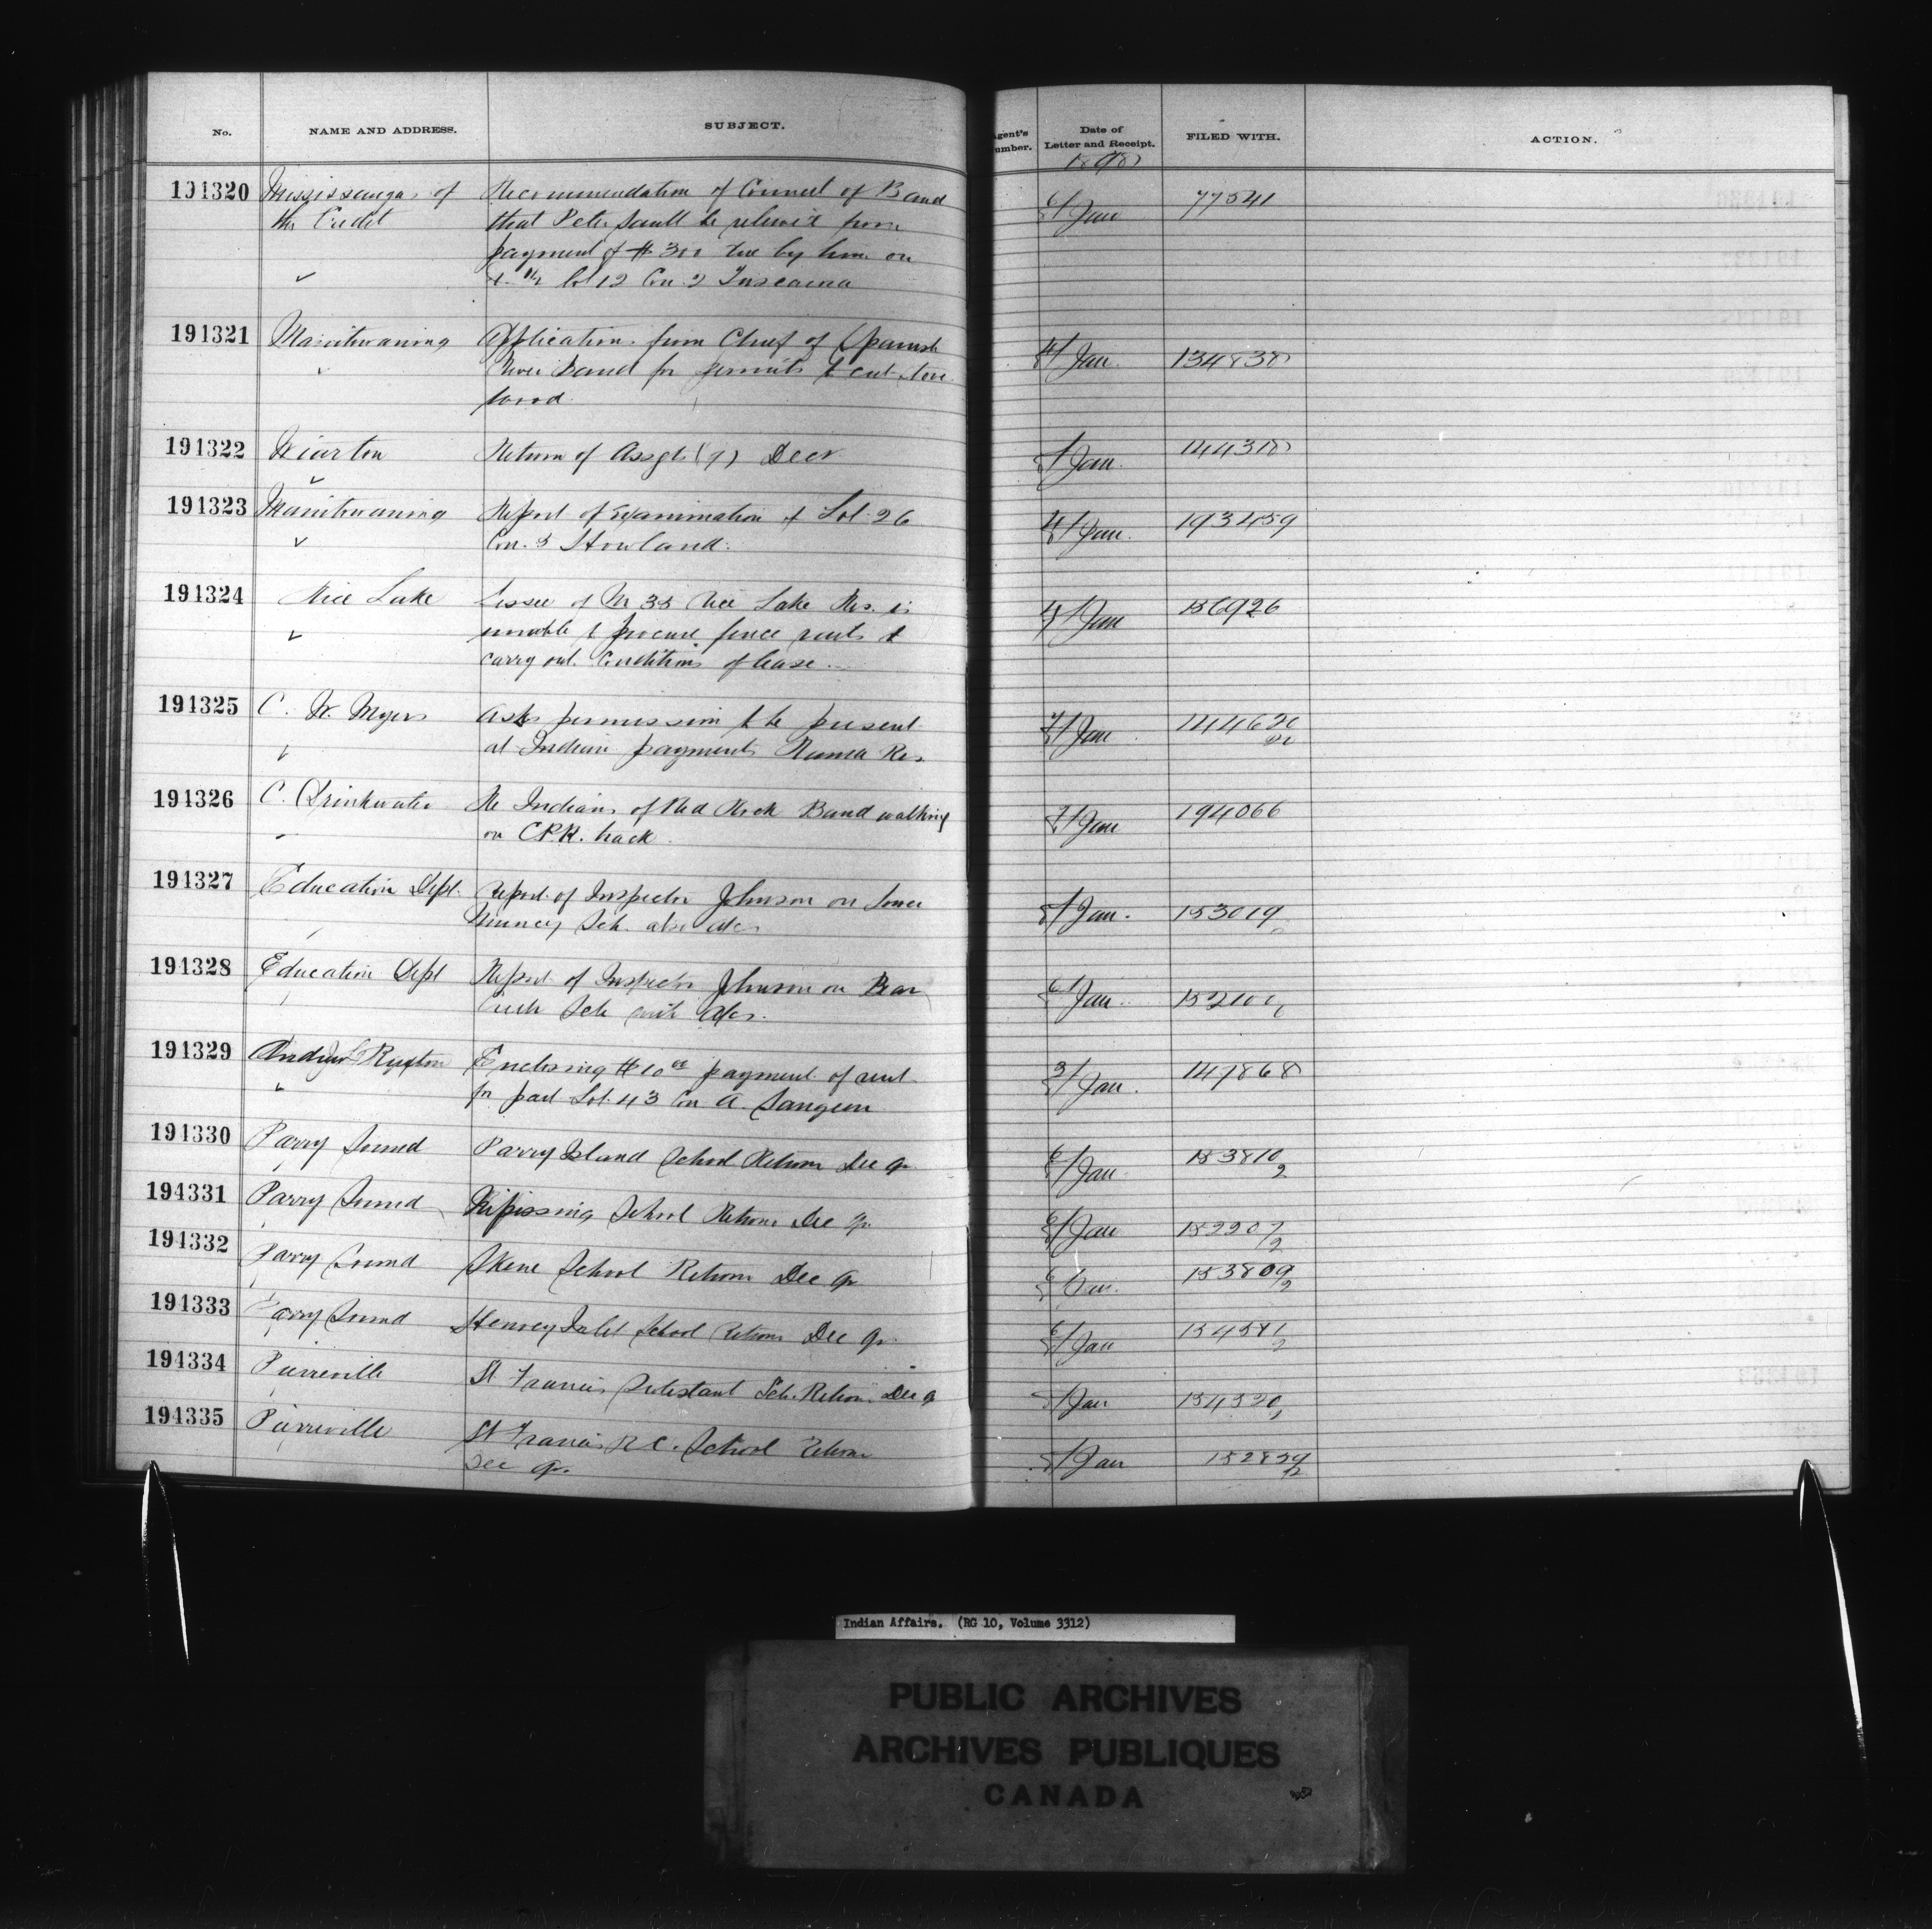 No. NAME AND ADDRESS. SUBJECT. Agent's Number. Date of Letter and Receipt. FILED WITH. ACTION.
1898
191320 Mississaugas of Recommendation of Council of Band 6/ Jan 77541
the Credit that Peter Sault be relieved from
payment of $300 due by him on
Lot 12 Con 2 Tuscarora
191321 Manitowaning Application from Chief of Spanish 4/ Jan. 134838
River Band for permits to cut
wood.
191322 Wiarton Return of Assgts (7) Decr Jan. 144318
191323 Manitowaning Report of Examination of Lot 26 4/ Jan. 193459
Con. 8 Howland.
191324 Rice Lake Lessee of 35 Rice Lake Res. is 4/ Jan 156926
unable to procure fence rails to
carry out conditions of lease.
191325 C. W. Myers Asks permission to be present 7/ Jan
at Indian payments Rama Res.
191326 C. Drinkwater Re Indians of Red Rock Band walking 7/ Jan 194066
on C.P.R. track.
191327 Education Dept. Report of Inspector Johnson on Lower Jan. 153019
Muncey Sch. also a/cs
191328 Education Dept Report of Inspector Johnson on Bear 6/ Jan.
Creek Sch with a/cs.
191329 Andrew Ruxton Enclosing $10 00 payment of rent 3/ Jan. 147868
for part Lot 43 Con A. Saugeen
191330 Parry Sound Parry Island School Return Dec Qr 6/ Jan 153810/2
191331 Parry Sound Nipissing School Return Dec Qr. 6/ Jan 152207/2
191332 Parry Sound Skene School Return Dec Qr 6/ Jan. 153809/2
191333 Parry Sound Henvey Inlet School Return Dec Qr. 6/ Jan 154581/2
191334 Pierreville St Francis Protestant Sch. Return Dec Q Jan 154320
191335 Pierreville St Francis R.C. School Return Jan
Dec Qr.
Indian Affairs. (RG 10, Volume 3312)
PUBLIC ARCHIVES
ARCHIVES PUBLIQUES
CANADA